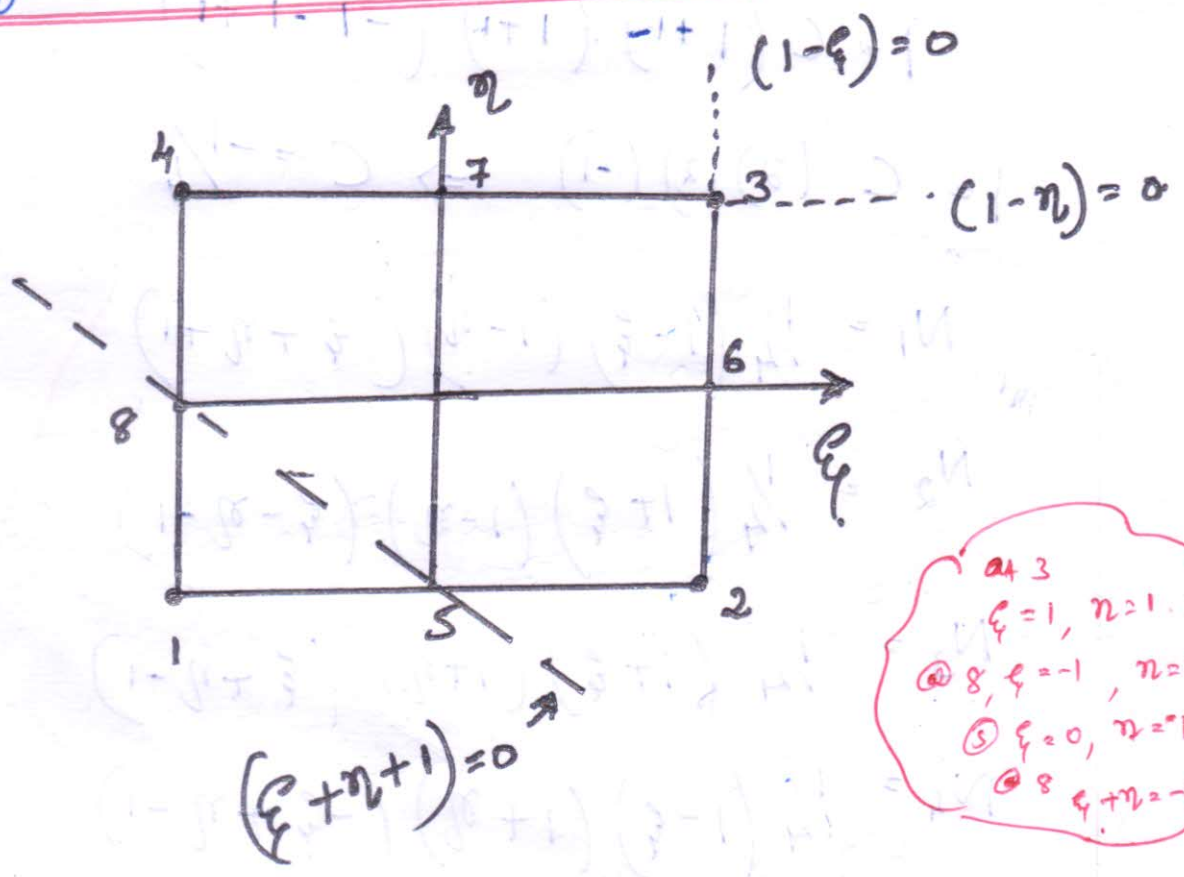 (1-ξ) = 0
η
4
7
3
(1-η) = 0
6
8
ξ
1
5
2
(ξ+η+1) = 0
at 3
ξ = 1, η = 1.
@ 8, ξ = -1, η =
⑤ ξ = 0, η = -1
@ 8
ξ + η = -